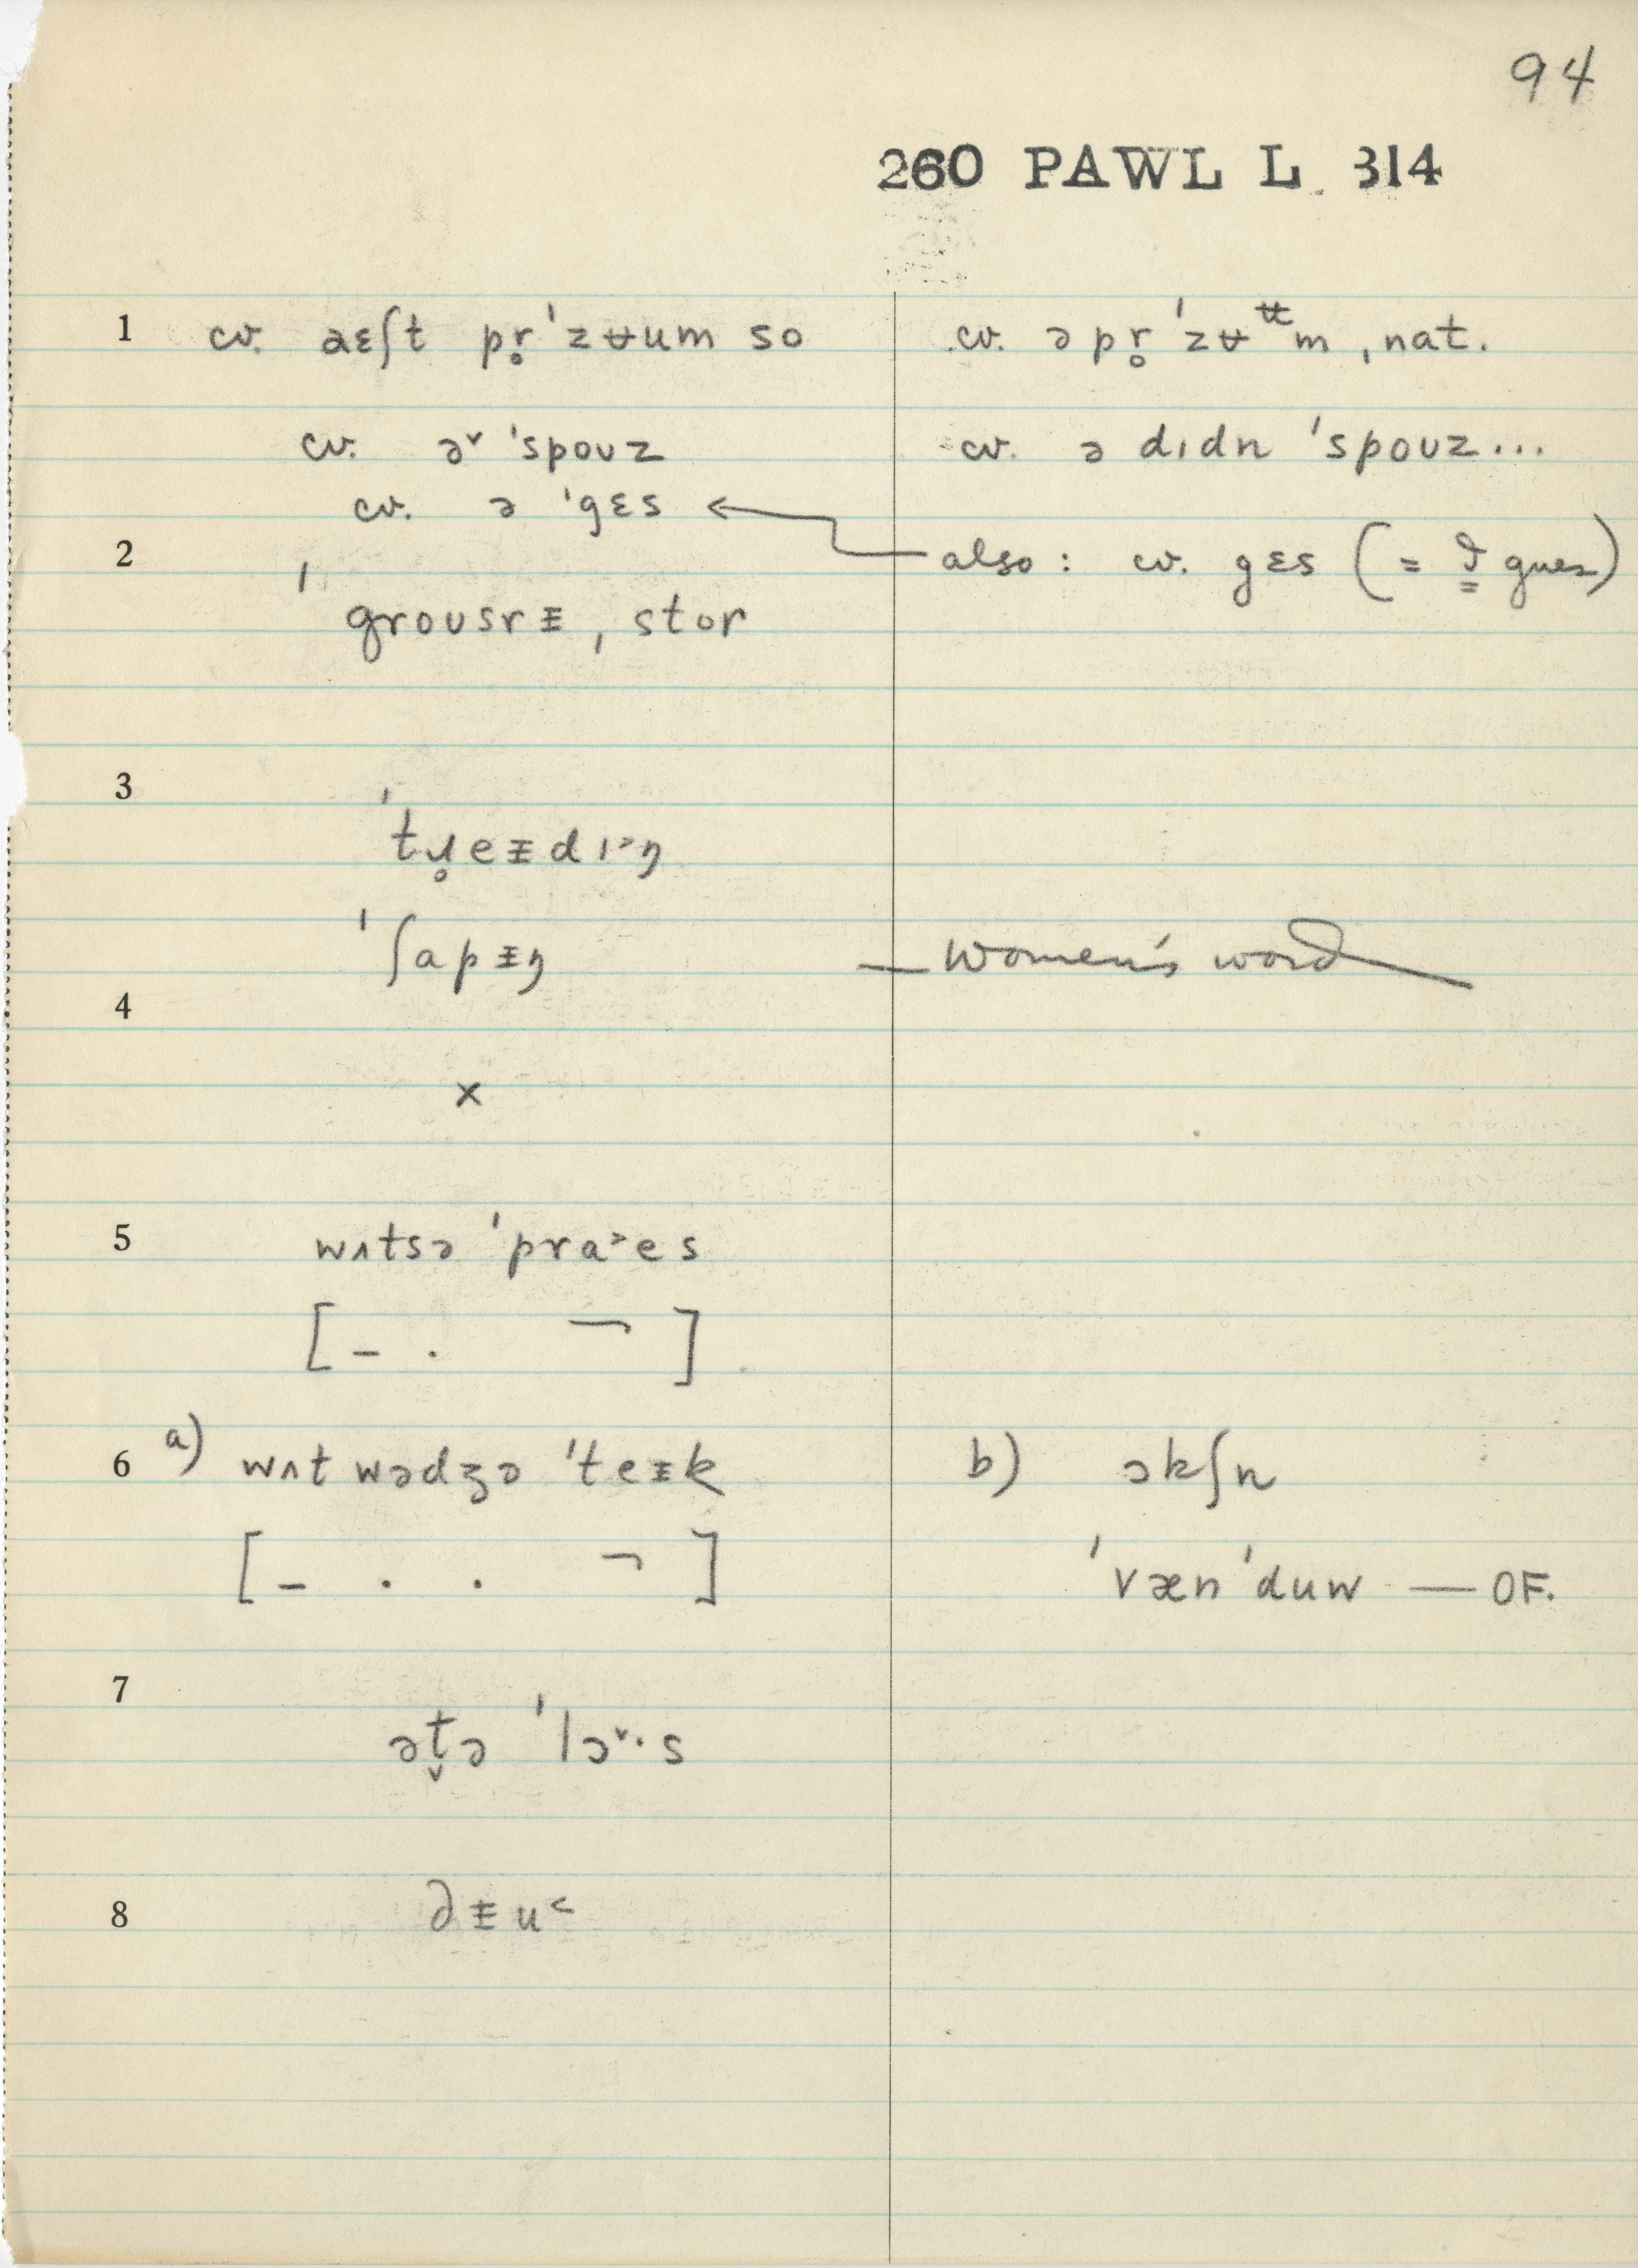 94
260 PAWL L 314
1 cv. aɛʃt pr̥ˈzʉum so
cv. əpr̥ˈzʉᵗᵗm, nat.
cv. ə˅ ˈspoʊz
cv. ə dɪdn ˈspoʊz...
cv. ə ˈgɛs
2 also: cv. gɛs (= I guess)
ˈgroʊsrᵻ ˌstor
3
ˈtɹ̥eᵻdɪ˃ŋ
ˈʃapᵻŋ — Women's word
4
x
5 wʌtsə ˈpra˃es
[– . ¬]
6 a) wʌt wədʒə ˈteᵻk
b) ɔkʃn
[– . . ¬]
ˈvænˈduw — OF.
7
ət̬ə ˈlɔ˅·s
8 ∂ᵻu˂